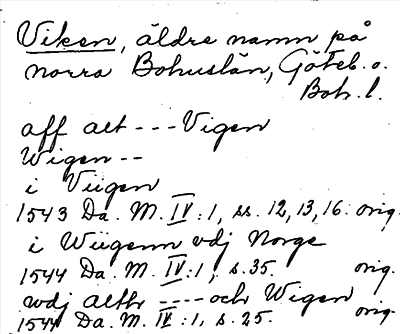 Viken, äldre namn på
norra Bohuslän, Göteb. o.
Boh. l.
aff alt --- Vigen
Wigen --
i Viigen
1543 Da. M. IV:1, ss. 12, 13, 16. orig.
i Wiigenn vdj Norge
1544 Da. M. IV:1, s. 35. orig.
wdj althr ---- och Wigen
1544 Da. M. IV:1, s. 25. orig.